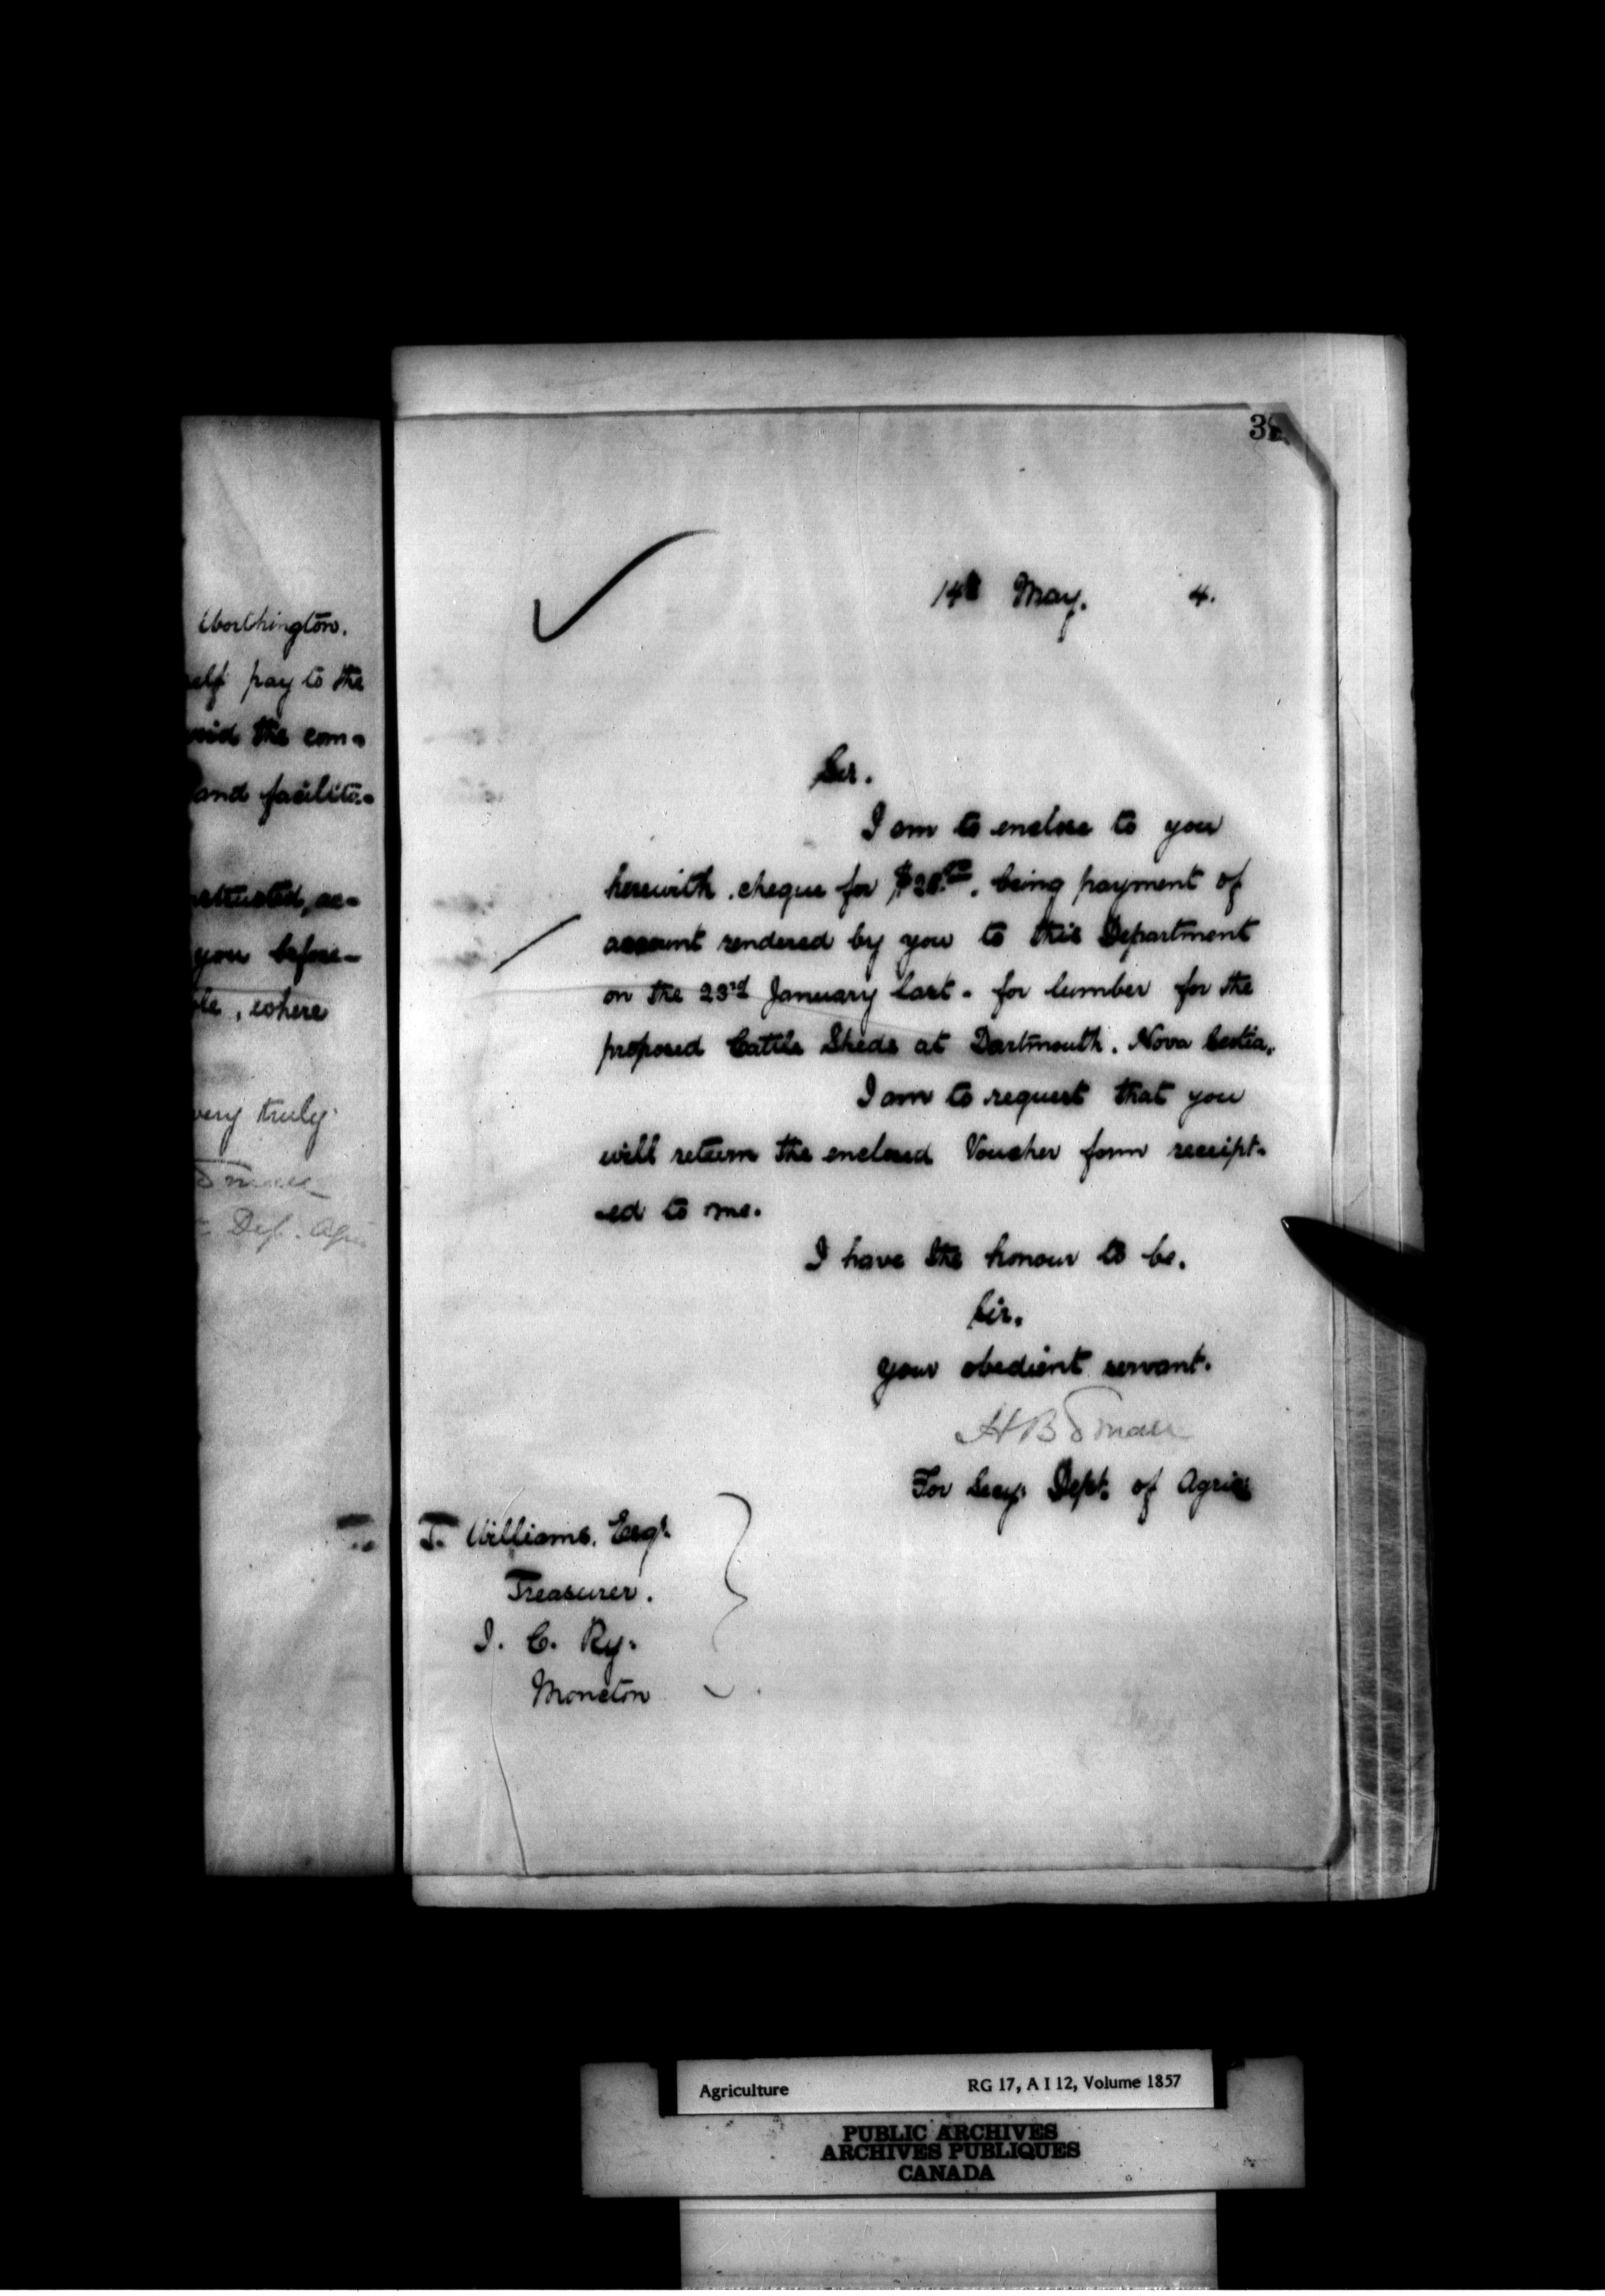 Worthington.
self pay to the
avoid the com-
and facilita-
nstructed, ac-
you before-
ble, where
very truly
Small
Dep. Agri
3
14th May. 4.
Sir.
I am to enclose to you
herewith. cheque for $28.00. being payment of
account rendered by you to this Department
on the 23rd January last. for lumber for the
proposed Cattle Sheds at Dartmouth. Nova Scotia.
I am to request that you
will return the enclosed Voucher form receipt-
-ed to me.
I have the honour to be.
Sir.
your obedient servant.
H B Small
For Secy. Dept. of Agric
J. Williams. Esqr.
Treasurer.
I. C. Ry.
Moncton
Agriculture RG 17, A I 12, Volume 1857
PUBLIC ARCHIVES
ARCHIVES PUBLIQUES
CANADA